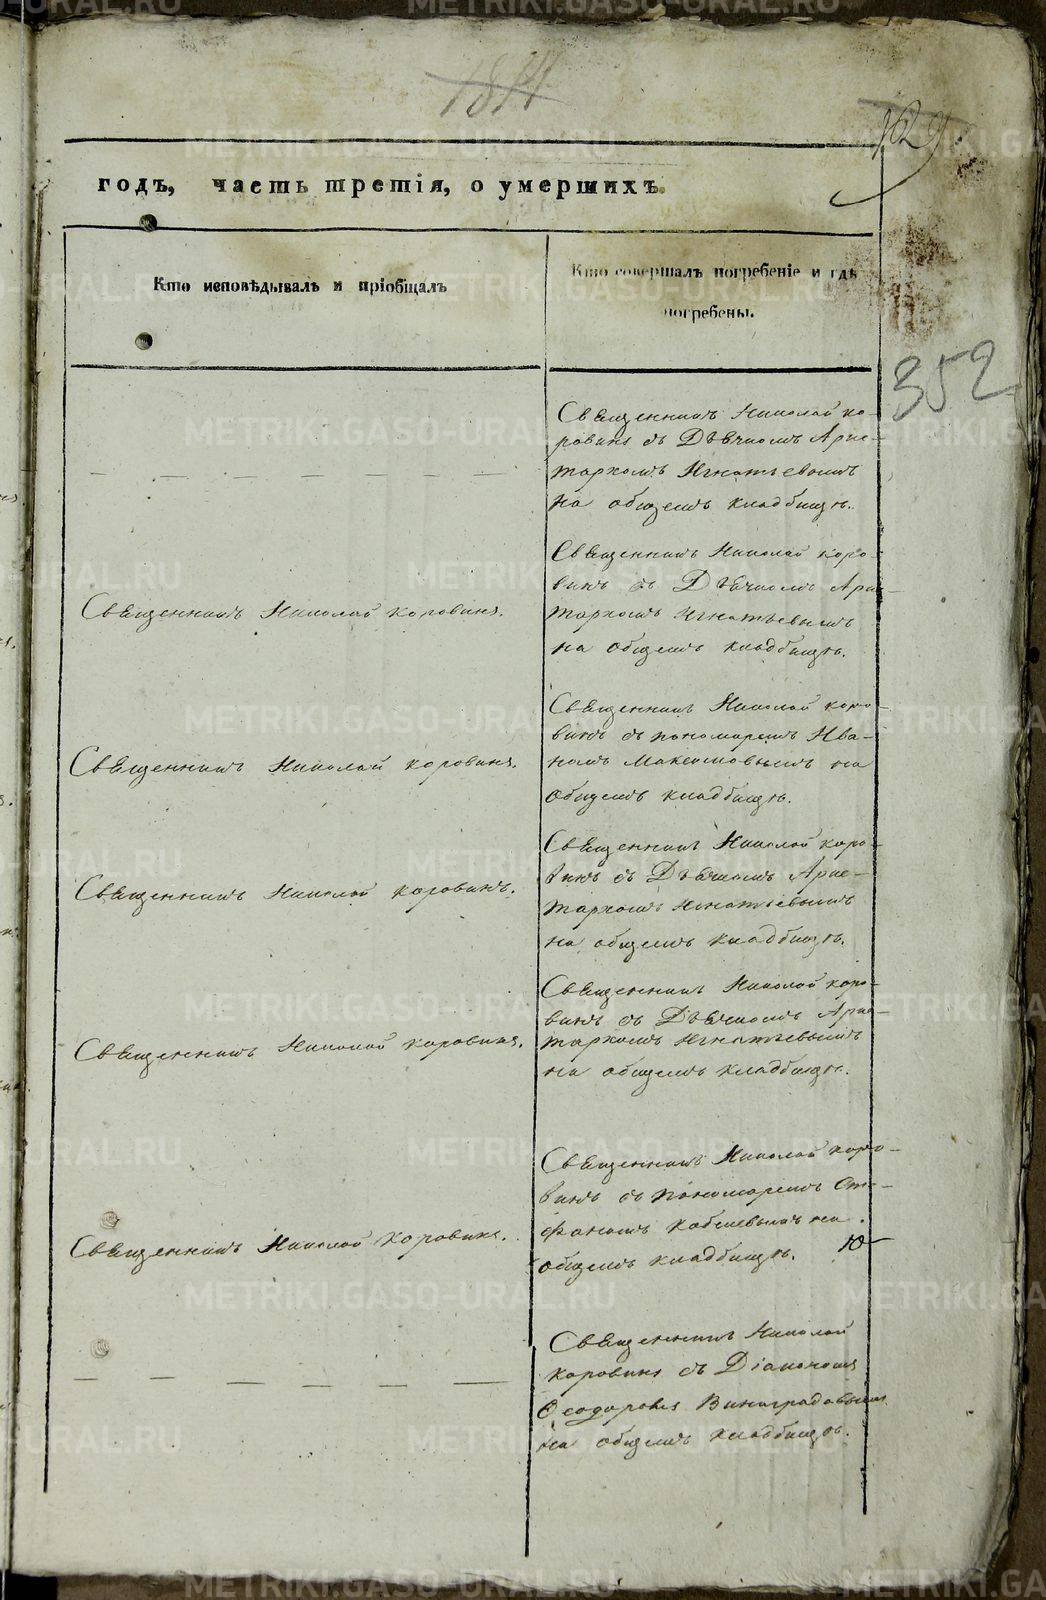 годъ, часть третія, о умершихъ.
Кто исповѣдывалъ и пріобщалъ
Кто совершалъ погребеніе и гдѣ
погребены.
352
Священникъ Николай Ко-
ровинъ съ Дьячкомъ Арис-
тархомъ Игнатьевымъ
на общемъ кладбищѣ.
Священникъ Николай Коровинъ.
Священникъ Николай Коро-
винъ съ Дьячкомъ Арис-
тархомъ Игнатьевымъ
на общемъ кладбищѣ.
Священникъ Николай Коровинъ.
Священникъ Николай Коро-
винъ съ пономаремъ Ива-
номъ Максимовымъ на
общемъ кладбищѣ.
Священникъ Николай Коровинъ.
Священникъ Николай Коро-
винъ съ Дьячкомъ Арис-
тархомъ Игнатьевымъ
на общемъ кладбищѣ.
Священникъ Николай Коровинъ.
Священникъ Николай Коро-
винъ съ Дьячкомъ Арис-
тархомъ Игнатьевымъ
на общемъ кладбищѣ.
Священникъ Николай Коровинъ.
Священникъ Николай Коро-
винъ съ пономаремъ Сте-
фаномъ на
общемъ кладбищѣ.
Священникъ Николай
Коровинъ съ Діакономъ
Ѳеодоромъ Виноградовымъ
на общемъ кладбищѣ.
METRIKI.GASO-URAL.RU